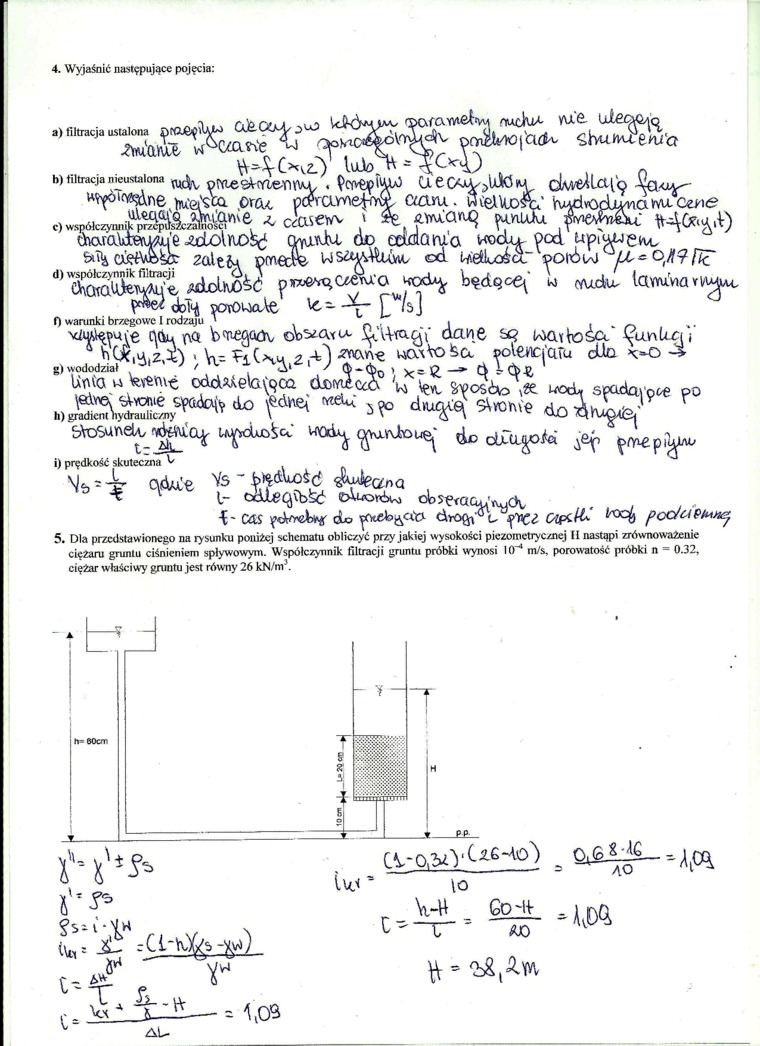 4. Wyjaśnić następujące pojęcia:
a) filtracja ustalona przepływ cieczy, w którym parametry ruchu nie ulegają
zmianie w czasie w poszczególnych przekrojach strumienia
H=f(x,z) lub H = f(x,y)
b) filtracja nieustalona ruch przestrzenny. Przepływ cieczy, który określają
współrzędne miejsca oraz parametry czasu. Wielkości hydrodynamiczne
ulegają zmianie z czasem i ze zmianą punktu przestrzeni H=f(x,y,t)
c) współczynnik przepuszczalności
charakteryzuje zdolność gruntu do oddania wody pod wpływem
siły ciężkości zależy przede wszystkim od wielkości porów μ = 0,117 √k
d) współczynnik filtracji
Charakteryzuje zdolność przesączenia wody będącej w ruchu laminarnym
przez porowate k = V/i [m/s]
f) warunki brzegowe I rodzaju
występuje gdy na brzegach obszaru filtracji dane są wartości funkcji
h(x,y,z,t) ; h= F1(x,y,z,t) znane wartości potencjału dla x=0 →
φ=φ0 ; x=l → φ = φl
g) wododział
Linia w terenie oddzielająca dorzecza w ten sposób, że wody spadające po
jednej stronie spadają do jednej rzeki, po drugiej stronie do drugiej
h) gradient hydrauliczny
Stosunek różnicy wysokości wody gruntowej do długości jej przepływu
i = Δh/L
i) prędkość skuteczna
Vs = L/t gdzie Vs - prędkość skuteczna
L - odległość otworów obserwacyjnych
t - czas potrzebny do przebycia drogi L przez cząstki wody podziemnej
5. Dla przedstawionego na rysunku poniżej schematu obliczyć przy jakiej wysokości piezometrycznej H nastąpi zrównoważenie
ciężaru gruntu ciśnieniem spływowym. Współczynnik filtracji gruntu próbki wynosi 10⁻⁴ m/s, porowatość próbki n = 0.32,
ciężar właściwy gruntu jest równy 26 kN/m³.
h= 60cm
L= 20 cm
H
10 cm
p.p.
γ'' = γ' ± ρs
γ' = ρs
ρs = i · γw
ikr = γ'/γw = (1-n)(γs-γw)/γw
i = ΔH/L
= 1,09
ΔL
ikr = (1-0,32)·(26-10)/10 = 0,68·16/10 = 1,09
i = h-H/L = 60-H/20 = 1,09
H = 38,2m